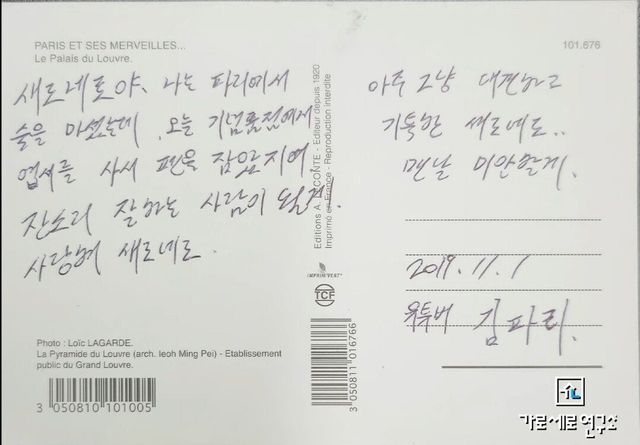 PARIS ET SES MERVEILLES...
Le Palais du Louvre.
새로네로야, 나는 파리에서
술을 마셨는데 오늘 기념품점에서
엽서를 사서 펜을 잡았지여.
잔소리 잘하는 사람이 될게.
사랑해 새로네로.
Photo : Loïc LAGARDE.
La Pyramide du Louvre (arch. Ieoh Ming Pei) - Etablissement
public du Grand Louvre.
3 050810 101005
Editions A. LECONTE - Editeur depuis 1920
Imprimé en France - Reproduction interdite
IMPRIM'VERT
TCF
3 050811 016766
101.676
아주 그냥 대견하고
기특한 새로네로..
맨날 미안할게.
2019.11.1
유투버 김파리.
가로세로연구소